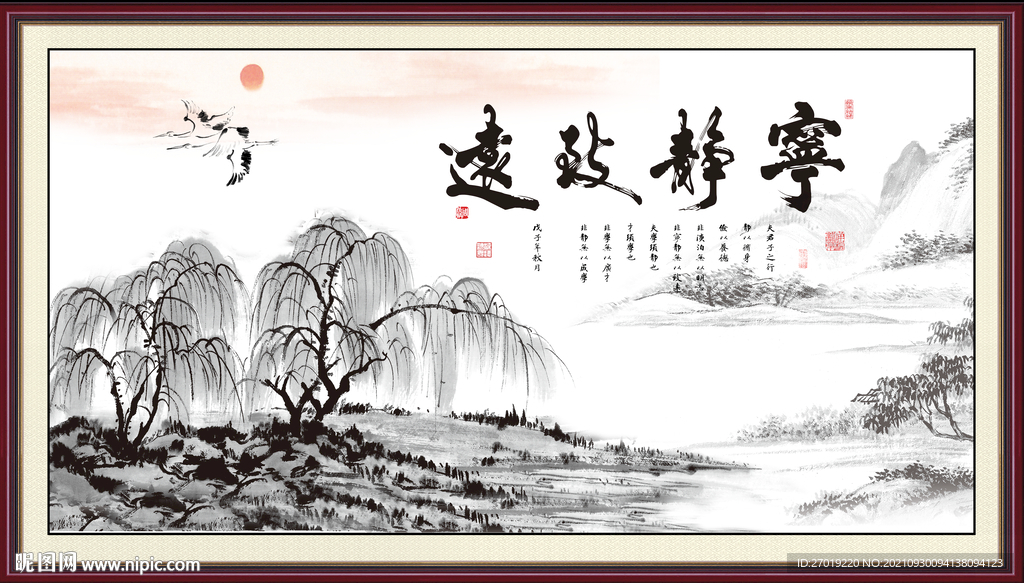 寧靜致遠
夫君子之行
靜以修身
儉以養德
非澹泊無以明志
非寧靜無以致遠
夫學須靜也
才須學也
非學無以廣才
非靜無以成學
戊子年秋月
昵图网 www.nipic.com
ID:27019220 NO:20210930094138094123